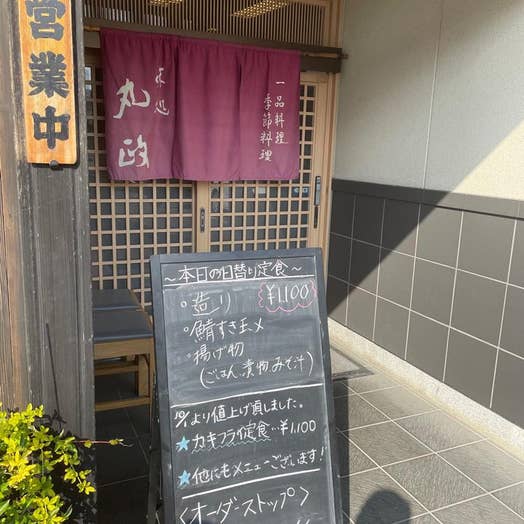 営業中
一品料理
季節料理
味処
丸政
～本日の日替り定食～
・造り ¥1,100
・鯖すき玉〆
・揚げ物
(ごはん 漬物 みそ汁)
10/1より値上げ頂しました。
★カキフライ定食…¥1,100
★他にもメニューございます!
<オーダーストップ>